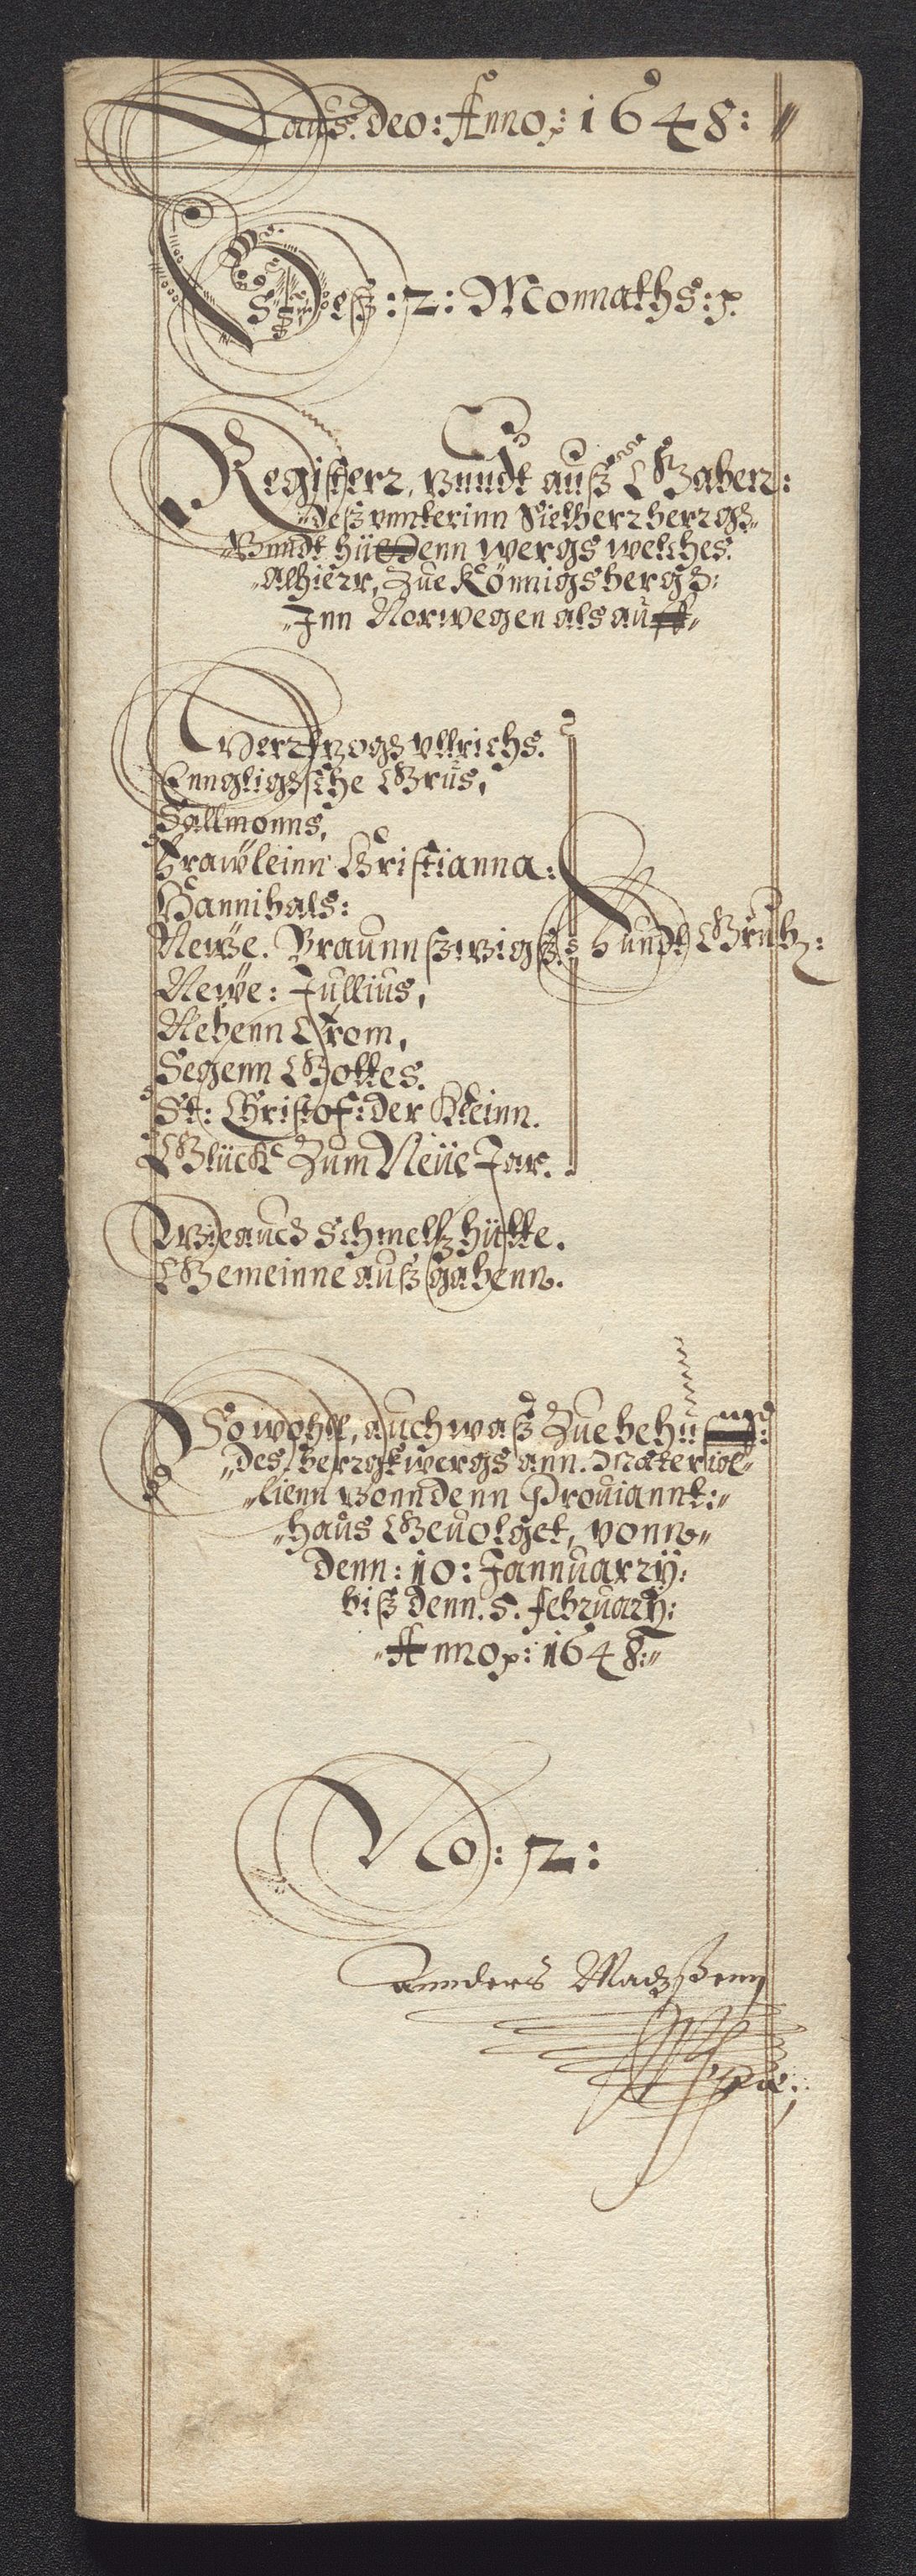 Laus: deo: Anno p: 1648:
Deß: 2: Monnaths: p.
Registerr, vnndt außGaberr:
deß vnnterinn Sielberr berrgs
Vnndt hüttenn wergs welches.
Alhierr, Zue Könnigsbergs:
Inn Norwegen als auff
Herrzogs vllrichs.
Enngligsche Grus,
Sallmonns,
Frawleinn Christianna:
Hannibals:
Newe. Braunnßwigß. Fundt Grub:
Newe: Jullius,
Nebenn Crom,
Segenn Gottes.
St: Christof: der Kleinn.
Glück Zum Neüe Jar.
Wie auch Schmeltz hütte.
Gemeinne auß gabenn.
So wohll, auch waß Zue behuff:
des berrgkwergs ann. Material
lienn vonn denn Proviannt:
haus Gevolget, vonn
denn: 10: Jannuarry:
biß denn. 5. february:
Anno p: 1648:
No: 2:
Annders Madzßenn